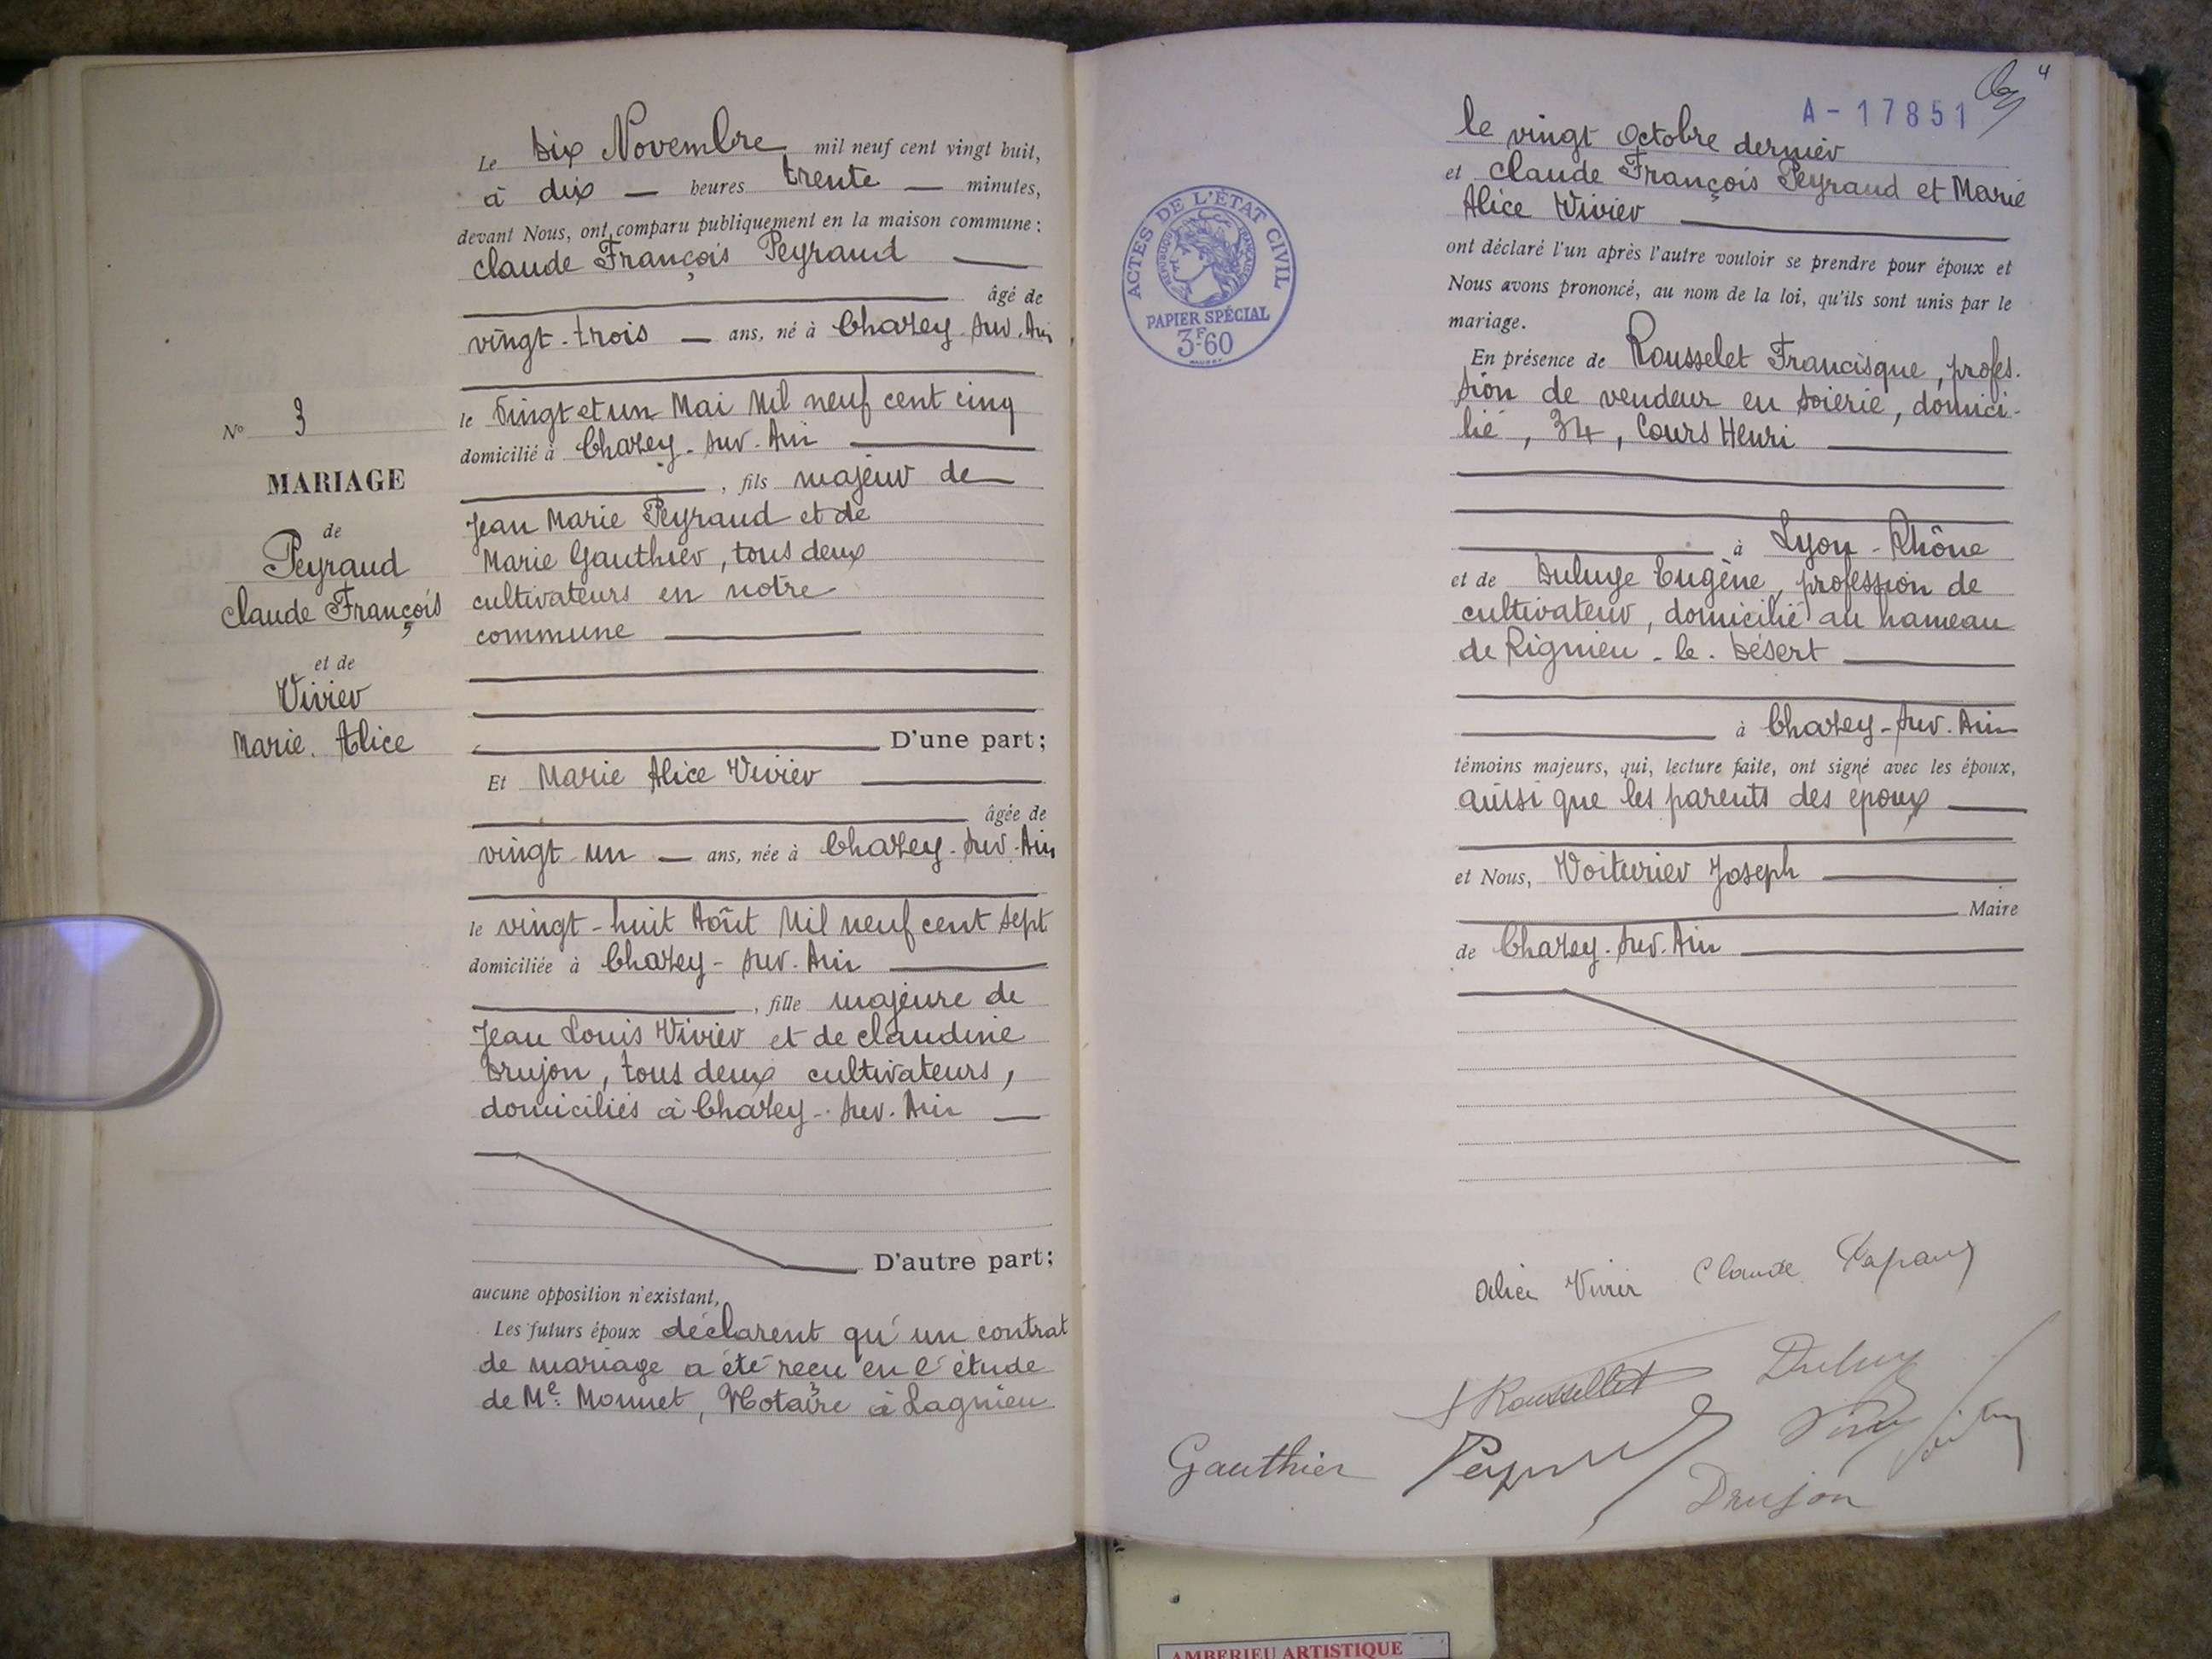 N° 3
MARIAGE
de
Peyraud
Claude François
et de
Vivier
Marie. Alice
Le dix Novembre mil neuf cent vingt huit,
à dix — heures trente — minutes,
devant Nous, ont comparu publiquement en la maison commune :
Claude François Peyraud
âgé de
vingt-trois — ans, né à Chazey-sur-Ain,
le vingt et un Mai Mil neuf cent cinq
domicilié à Chazey-sur-Ain
, fils majeur de
Jean Marie Peyraud et de
Marie Gauthier, tous deux
cultivateurs en notre
commune
D'une part;
Et Marie Alice Vivier
âgée de
vingt un — ans, née à Chazey-sur-Ain
le vingt-huit Août Mil neuf cent sept
domiciliée à Chazey-sur-Ain
, fille majeure de
Jean Louis Vivier et de Claudine
Drujon, tous deux cultivateurs,
domiciliés à Chazey-sur-Ain
D'autre part;
aucune opposition n'existant,
Les futurs époux déclarent qu'un contrat
de mariage a été reçu en l'étude
de Me Monnet, Notaire à Lagnieu
4
A-17851
le vingt Octobre dernier
et Claude François Peyraud et Marie
Alice Vivier
ont déclaré l'un après l'autre vouloir se prendre pour époux et
Nous avons prononcé, au nom de la loi, qu'ils sont unis par le
mariage.
En présence de Rousselet Francisque, profes-
sion de vendeur en soierie, domici-
lié, 34, Cours Henri
à Lyon-Rhône
et de Duluye Eugène, profession de
cultivateur, domicilié au hameau
de Rignieu-le-Désert
à Chazey-sur-Ain
témoins majeurs, qui, lecture faite, ont signé avec les époux,
aussi que les parents des époux
et Nous, Voiturier Joseph
Maire
de Chazey-sur-Ain
ACTES DE L'ÉTAT CIVIL
RÉPUBLIQUE FRANÇAISE
PAPIER SPÉCIAL
3F60
Alice Vivier Claude
Rousselet
Gauthier
Drujon
AMBERIEU ARTISTIQUE